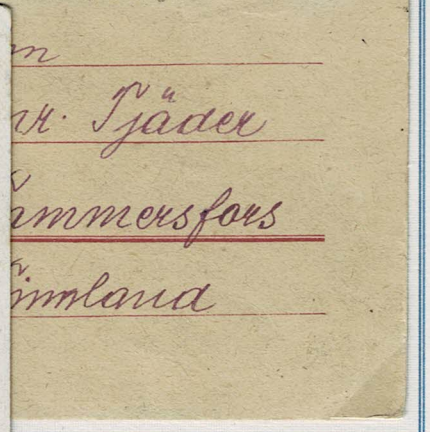 m
nr. Tjäder
ammersfors
innland